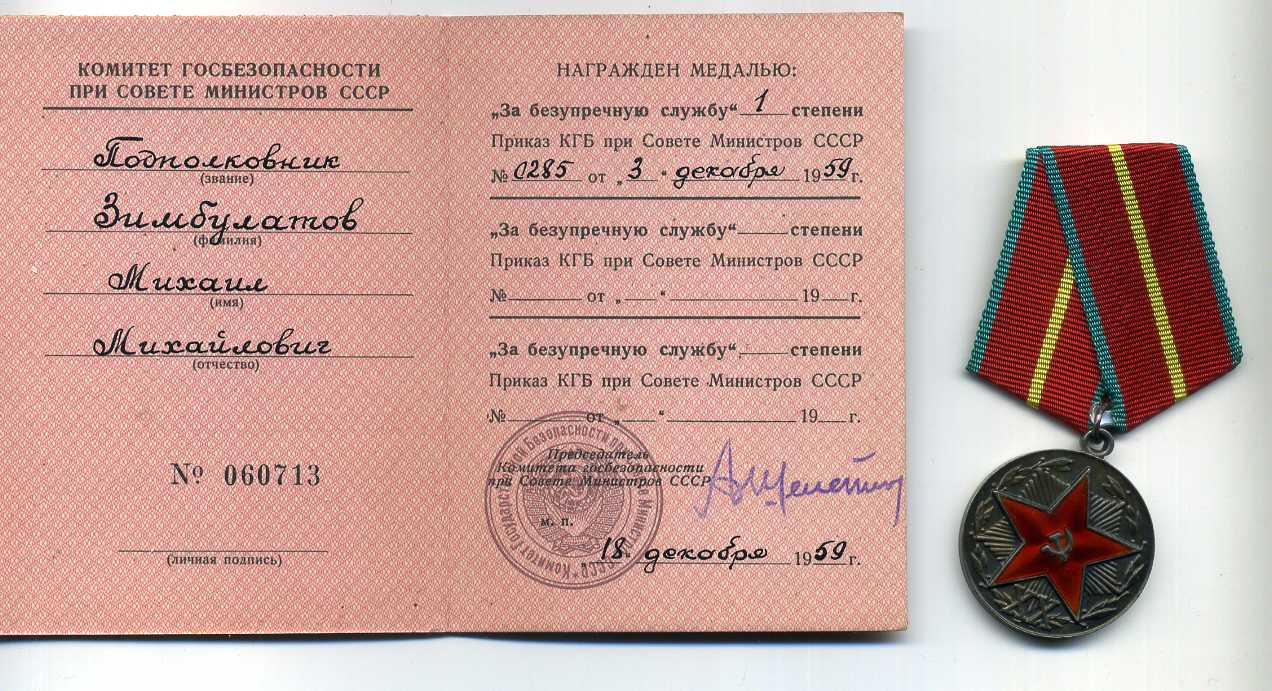 КОМИТЕТ ГОСБЕЗОПАСНОСТИ
ПРИ СОВЕТЕ МИНИСТРОВ СССР
Подполковник
(звание)
Зимбулатов
(фамилия)
Михаил
(имя)
Михайлович
(отчество)
№ 060713
(личная подпись)
НАГРАЖДЕН МЕДАЛЬЮ:
„За безупречную службу“ 1 степени
Приказ КГБ при Совете Министров СССР
№ 0285 от „3“ декабря 1959 г.
„За безупречную службу“ степени
Приказ КГБ при Совете Министров СССР
№ от „ “ 19 г.
„За безупречную службу“ степени
Приказ КГБ при Совете Министров СССР
№ от „ “ 19 г.
Председатель
Комитета госбезопасности
при Совете Министров СССР
м. п.
18 декабря 1959 г.
XX